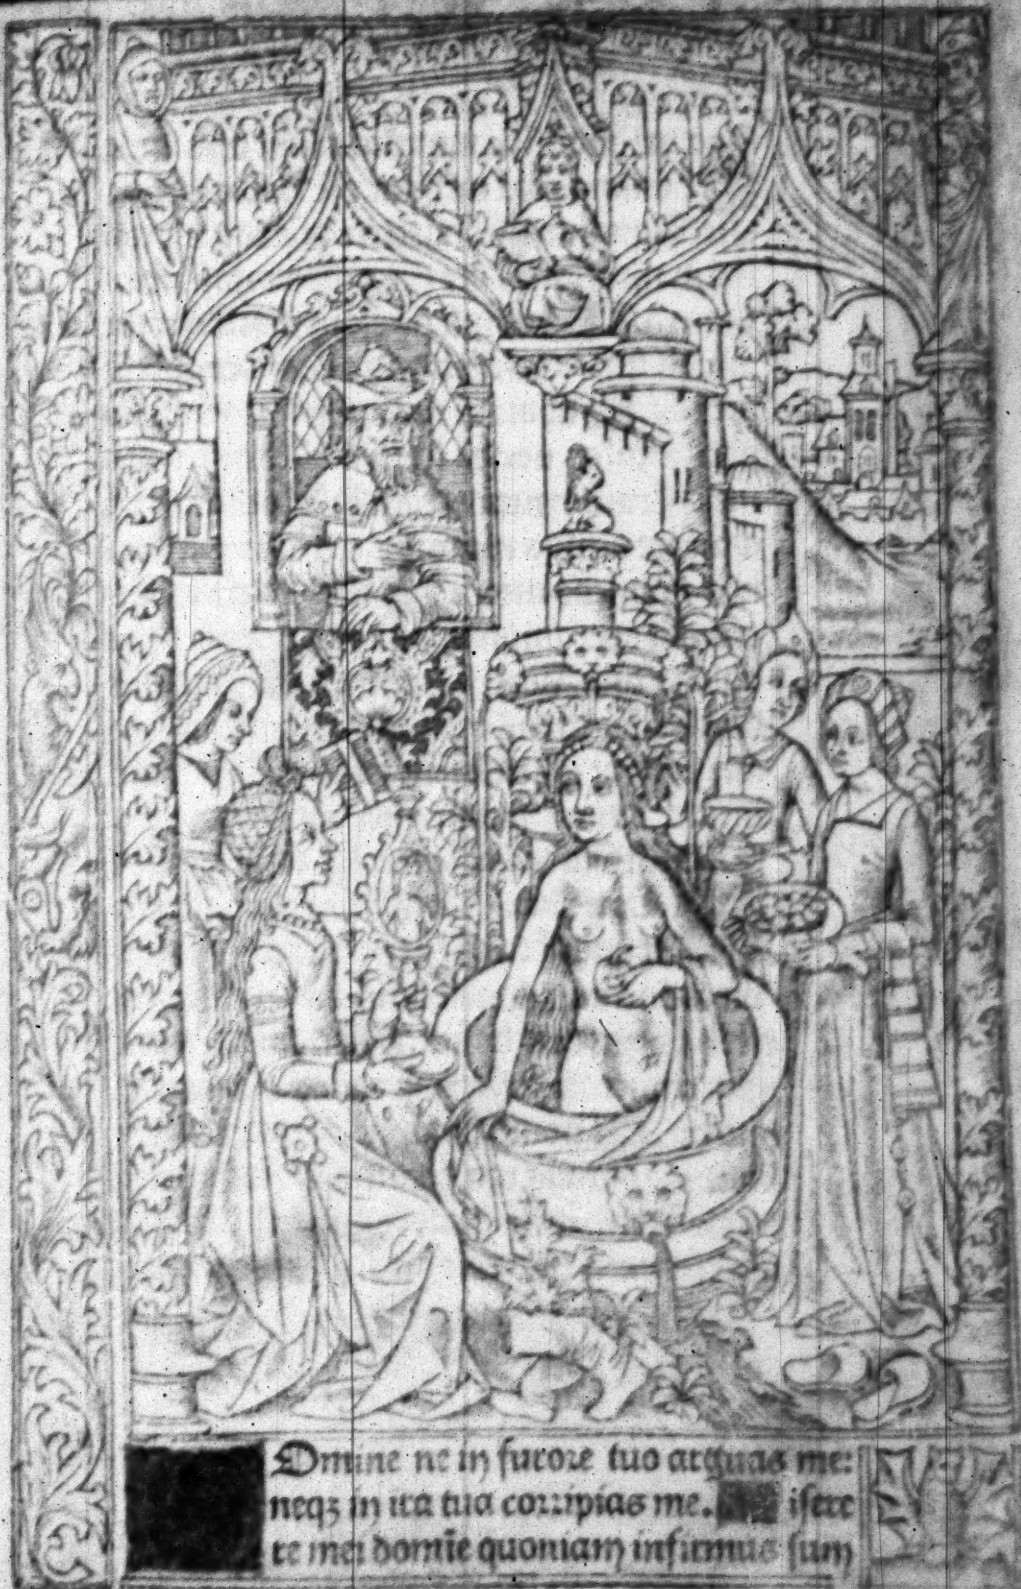 Omine ne in furore tuo arguas me:
neqz in ira tua corripias me. isere
re mei domīe quoniam infirmus sum